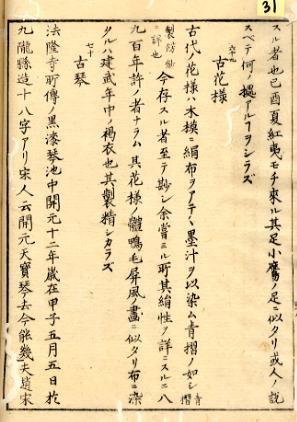 31
スル者也己酉夏紅夷モチ來ル其足小鷹ノ足ニ似タリ或人ノ説
スベテ何ノ據アルヲシラズ
六十九
古花樣
古代ノ花樣ハ木模ニ絹布ヲアテヽ墨汁ヲ以染ム青摺ノ如シ青摺
今存スル者至テ尠シ余嘗ミル所其絹性ヲ詳ニスルニ八
九百年許ノ者ナラム其花樣ノ體鴨毛屏風ノ畫ニ似タリ布ニ染
タルハ建武年中ノ褐衣也其製精シカラズ
七十
古琴
法隆寺所傳ノ黒漆琴池中開元十二年歳在甲子五月五日於
九隴縣造十八字アリ宋人云開元天寶琴去今能幾夫趙宋